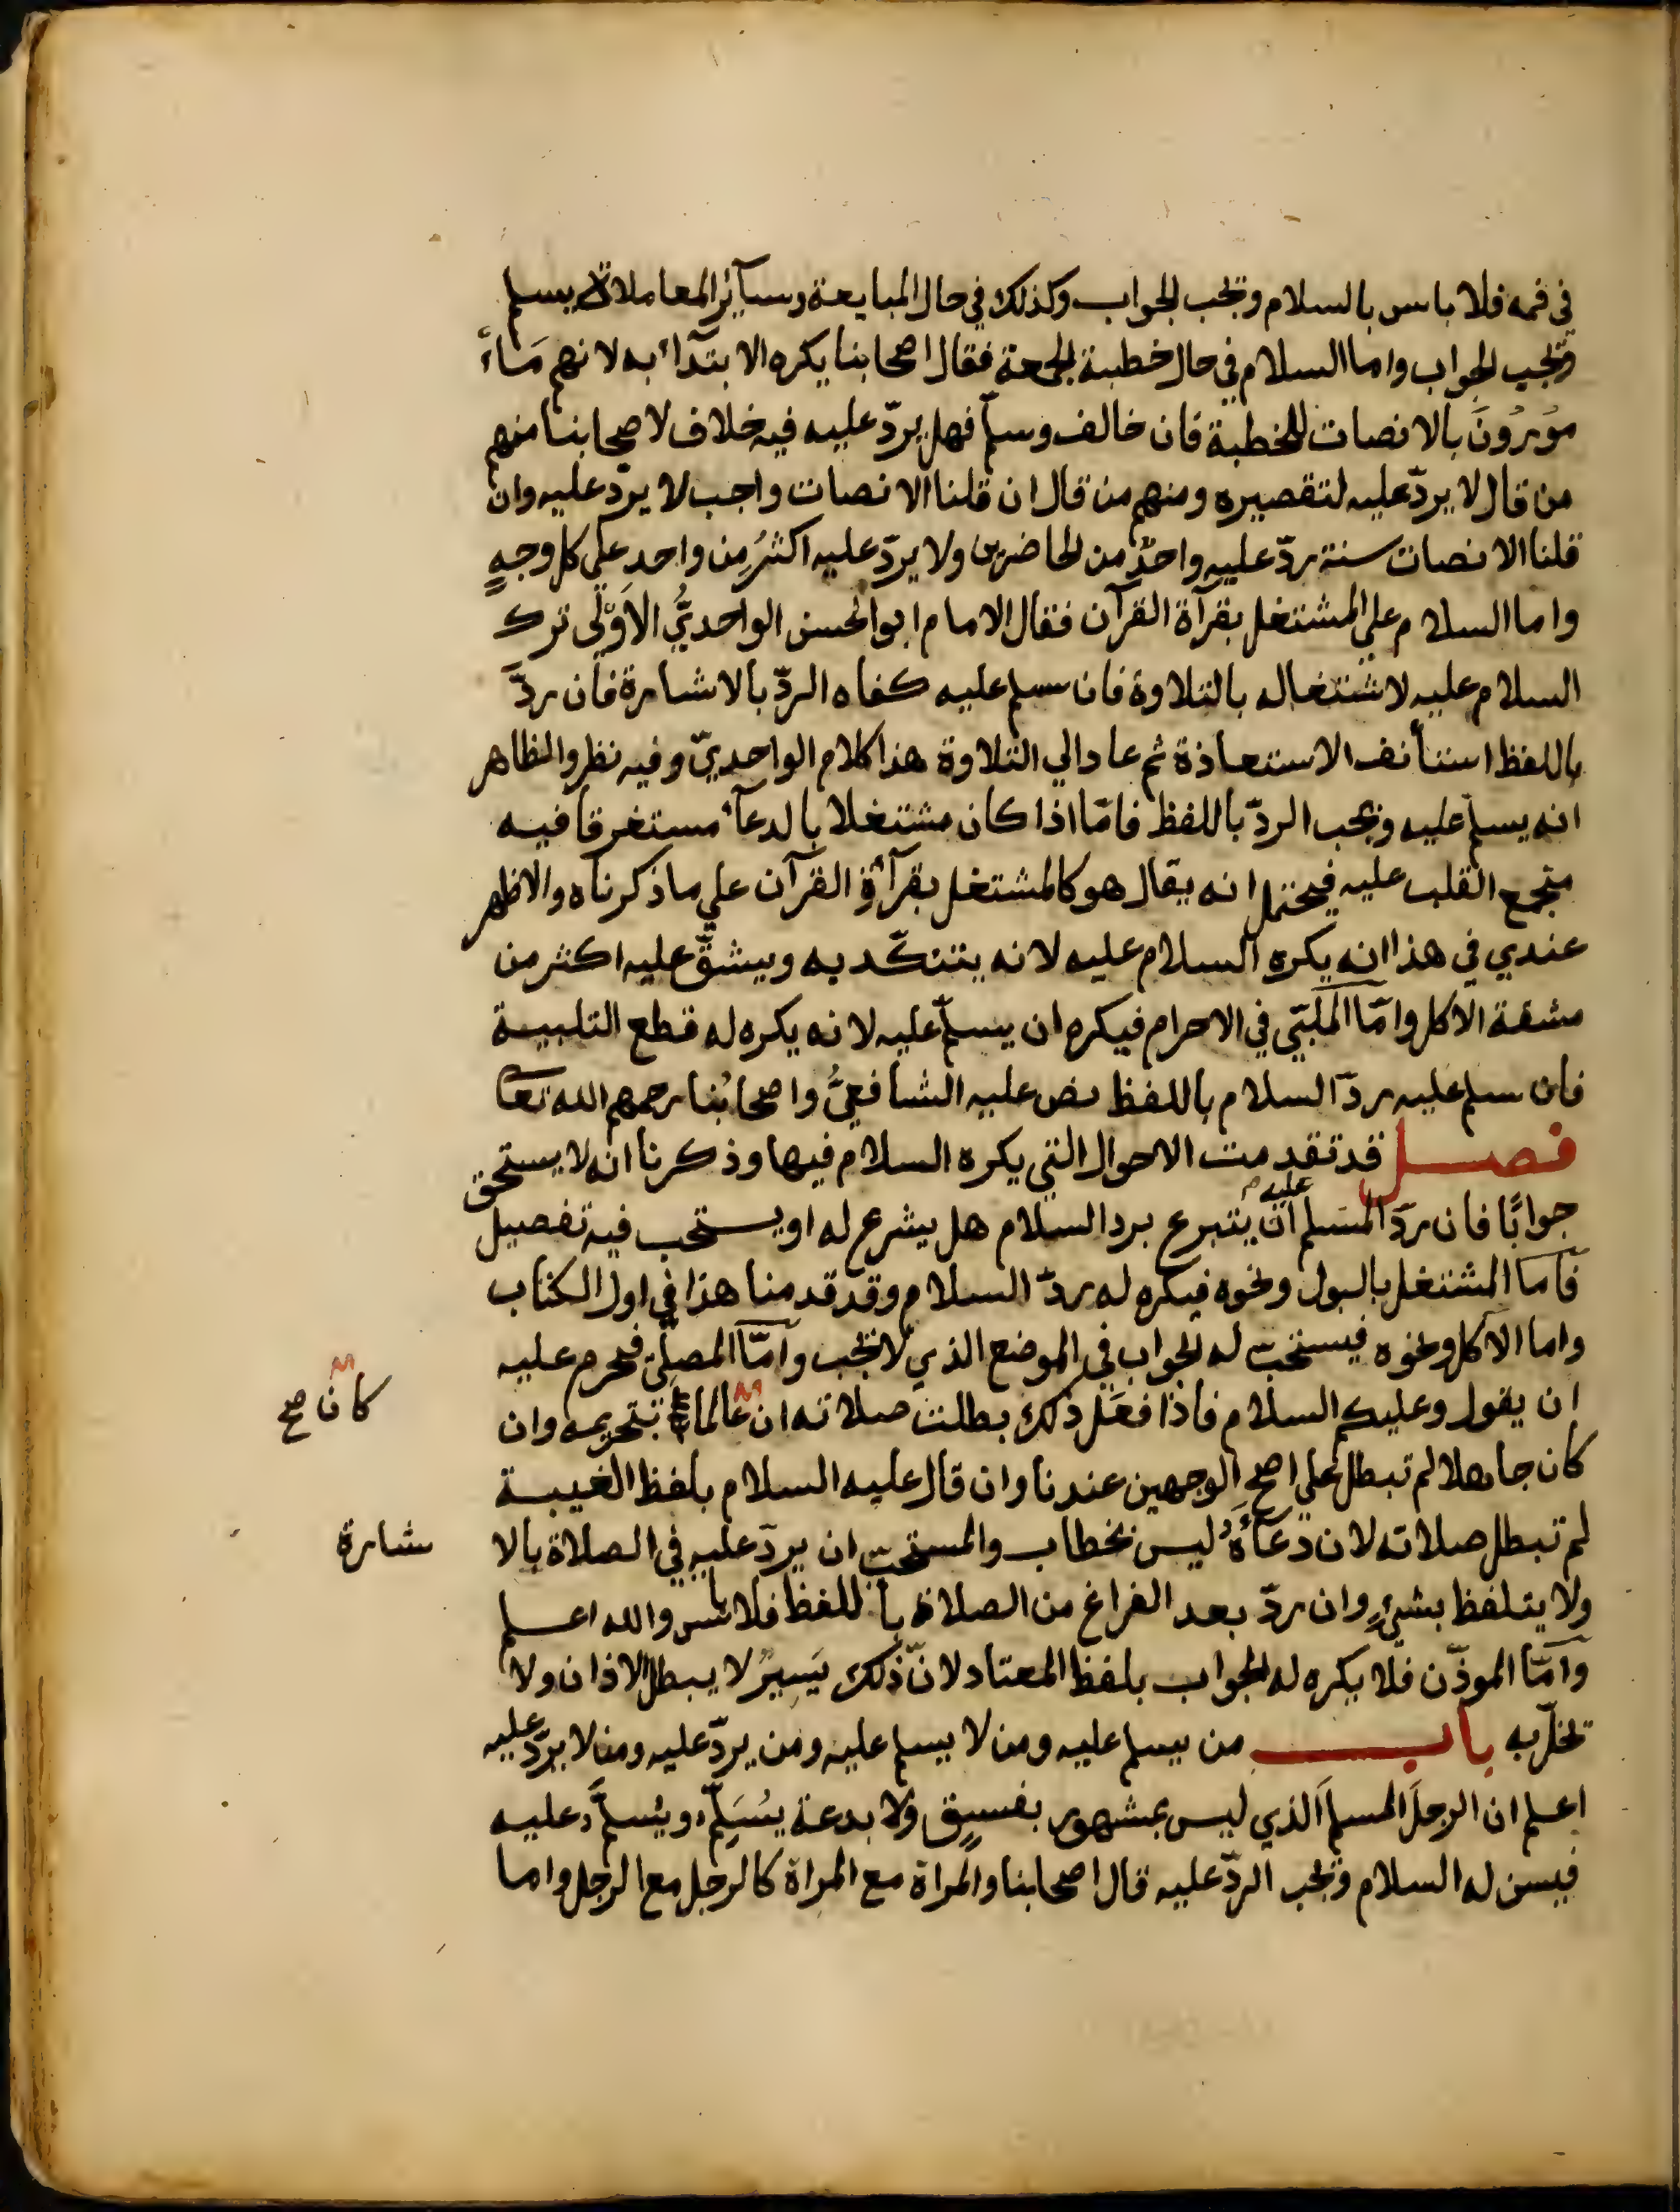 في فمه فلا باس بالسلام وتجب الجواب وكذلك في حال المبايعة وسآئر المعاملات يسلم
وتجب الجواب واما السلام في حال خطبة الجمعة فقال اصحابنا يكره الابتدآء به لانهم
مورون بالانصات للخطبة فان خالف وسلّم فهل يردّ عليه فيه خلاف لاصحابنا منهم
من قال لا يردّ عليه لتقصيره ومنهم من قال ان قلنا الانصات واجب لا يردّ عليه وان
قلنا الانصات سنة ردّ عليه واحدٌ من الحاضرين ولا يردّ عليه اكثرُ مِن واحد على كل وجهٍ
واما السلام علي المشتغل بقرآة القرآن فقال الامام ابوالحسن الواحديُّ الاَوْلَى ترك
السلام عليه لاشتغاله بالتلاوة فان سلم عليه كفاه الردّ بالاشارة فان ردّ
باللفظ استأنف الاستعاذة ثم عاد الي التلاوة هذا كلام الواحديّ وفيه نظر والظاهر
انه يسلّم عليه ويجب الردّ باللفظ فامّا اذا كان مشتغلا بالدعآء مستغرقا فيه
مجمع القلب عليه فيحتمل انه يقال هو كالمشتغل بقرآءة القرآن علي ما ذكرناه والاظهر
عندي في هذا انه يكره السلام عليه لانه يتنكّد به ويشقّ عليه اكثر من
مشقة الاكل وامّا الملبّي في الاحرام فيكره ان يسلّم عليه لانه يكره له قطع التلبية
فان سلم عليه ردّ السلام باللفظ نص عليه الشافعيُّ واصحابُنا رحمهم الله تعا
فصل قد تقدمت الاحوال التي يكره السلام فيها وذكرنا انه لا يستحق
جوابًا فان ردّ المسلم عليه ان يتبرع برد السلام هل يشرع له او يستحب فيه تفصيل
فأما المشتغل بالبول ونحوه فيكره له ردّ السلام وقد قدمنا هذا في اول الكتاب
واما الآكل ونحوه فيستحبّ له الجواب في الموضع الذي لا تجب وامّا المصلّي فحرم عليه
ان يقول وعليكم السلام فاذا فعَل ذلك بطلت صلاته ان عالما بتحريمه وان
كان صح
كان جاهلا لم تبطل علي اصح الوجهين عندنا وان قال عليه السلام بلفظ الغيبة
لم تبطل صلاته لان دعآءه ليس بخطاب والمستحبّ ان يردّ عليه في الصلاة بالا
شارة
ولا يتلفظ بشيءٍ وان ردّ بعد الفراغ من الصلاة باللفظ فلا باس والله اعلم
وامّا الموذّن فلا يكره له الجواب بلفظ المعتاد لانّ ذلك يَسِيرٌ لا يبطل الاذان ولا
تخلّ به باب من يسلم عليه ومن لا يسلم عليه ومن يردّ عليه ومن لا يردّ عليه
اعلم ان الرجلَ المسلمَ الذي ليس بمشهور بفسيق ولا بدعة يُسَلِّم ويُسلَّم عليه
فيسن له السلام وتجب الردّ عليه قال اصحابنا والمراة مع المراة كالرجل مع الرجل واما